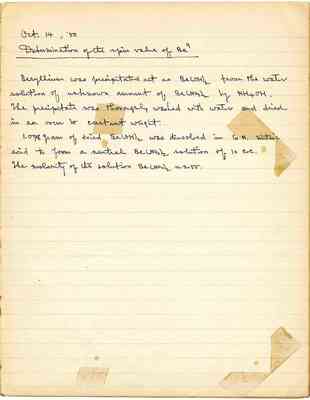 Oct. 14, '50
Determination of the spin value of Be⁹
Beryllium was precipitated out as Be(OH)₂ from the water
solution of unknown amount of by NH₄OH.
The precipitate was thoroughly washed with water and dried
in an oven to constant weight.
gram of dried Be(OH)₂ was dissolved in
acid to form a neutral solution of 10 c.c.
The molarity of the solution